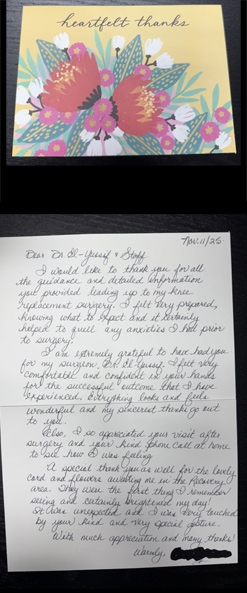 heartfelt thanks
Nov. 11/25
Dear Dr. El-Yussif & Staff
I would like to thank you for all
the guidance and detailed information
you provided leading up to my knee
replacement surgery. I felt very prepared,
knowing what to expect and it certainly
helped to quell any anxieties I had prior
to surgery.
I am extremely grateful to have had you
for my surgeon, Dr. El-Yussif. I felt very
comfortable and confident in your hands
for the successful outcome that I have
experienced. Everything looks and feels
wonderful and my sincerest thanks go out
to you.
Also, I so appreciated your visit after
surgery and your kind phone call at home
to see how I was feeling.
A special thank you as well for the lovely
card and flowers awaiting me in the Recovery
area. They were the first thing I remember
seeing and certainly brightened my day!
It was unexpected and I was very touched
by your kind and very special gesture.
With much appreciation and many thanks!
Warmly,